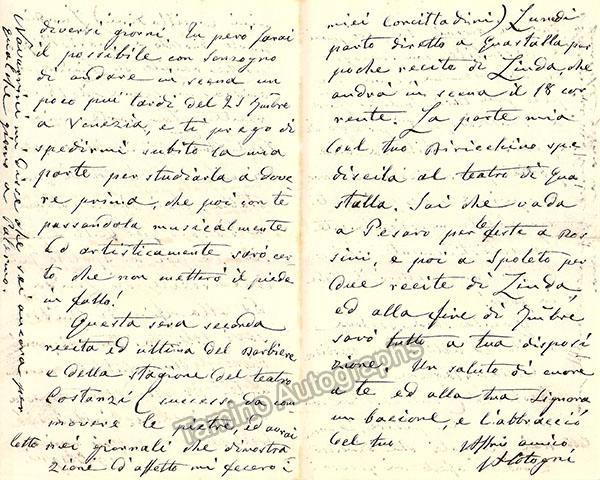 diversi giorni. Tu però farai
il possibile con Sonzogno
di andare in scena un
poco più tardi del 25 7mbre
a Venezia, e ti prego di
spedirmi subito la mia
parte per studiarla a dove
re prima, che poi con te
passandola musicalmente
ed artisticamente sarò cer
to, che non metterò il piede
in fallo!
Questa sera seconda
recita ed ultima del Barbiere
e della stagione del teatro
Costanzi (successo da com
movere le pietre, ed avrai
letto nei giornali che dimostra
zione d'affetto mi fecero i
Navarrini mi disse che sei ancora per
qualche giorno a Palermo.
miei concittadini) Lunedi
parto diretto a Guastalla per
poche recite di Linda, che
andrà in scena il 18 cor
rente. La parte mia
del tuo Biricchino spe
discila al teatro di Gua
stalla. Sai che vado
a Pesaro per le feste a Ros
sini, e poi a Spoleto per
due recite di Linda,
ed alla fine di 7mbre
sarò tutto a tua disposi
zione. Un saluto di cuore
a te, ed alla tua Signora
un bacione, e l'abbraccio
del tuo
Affmo amico
ACotogni
Tamino Autographs